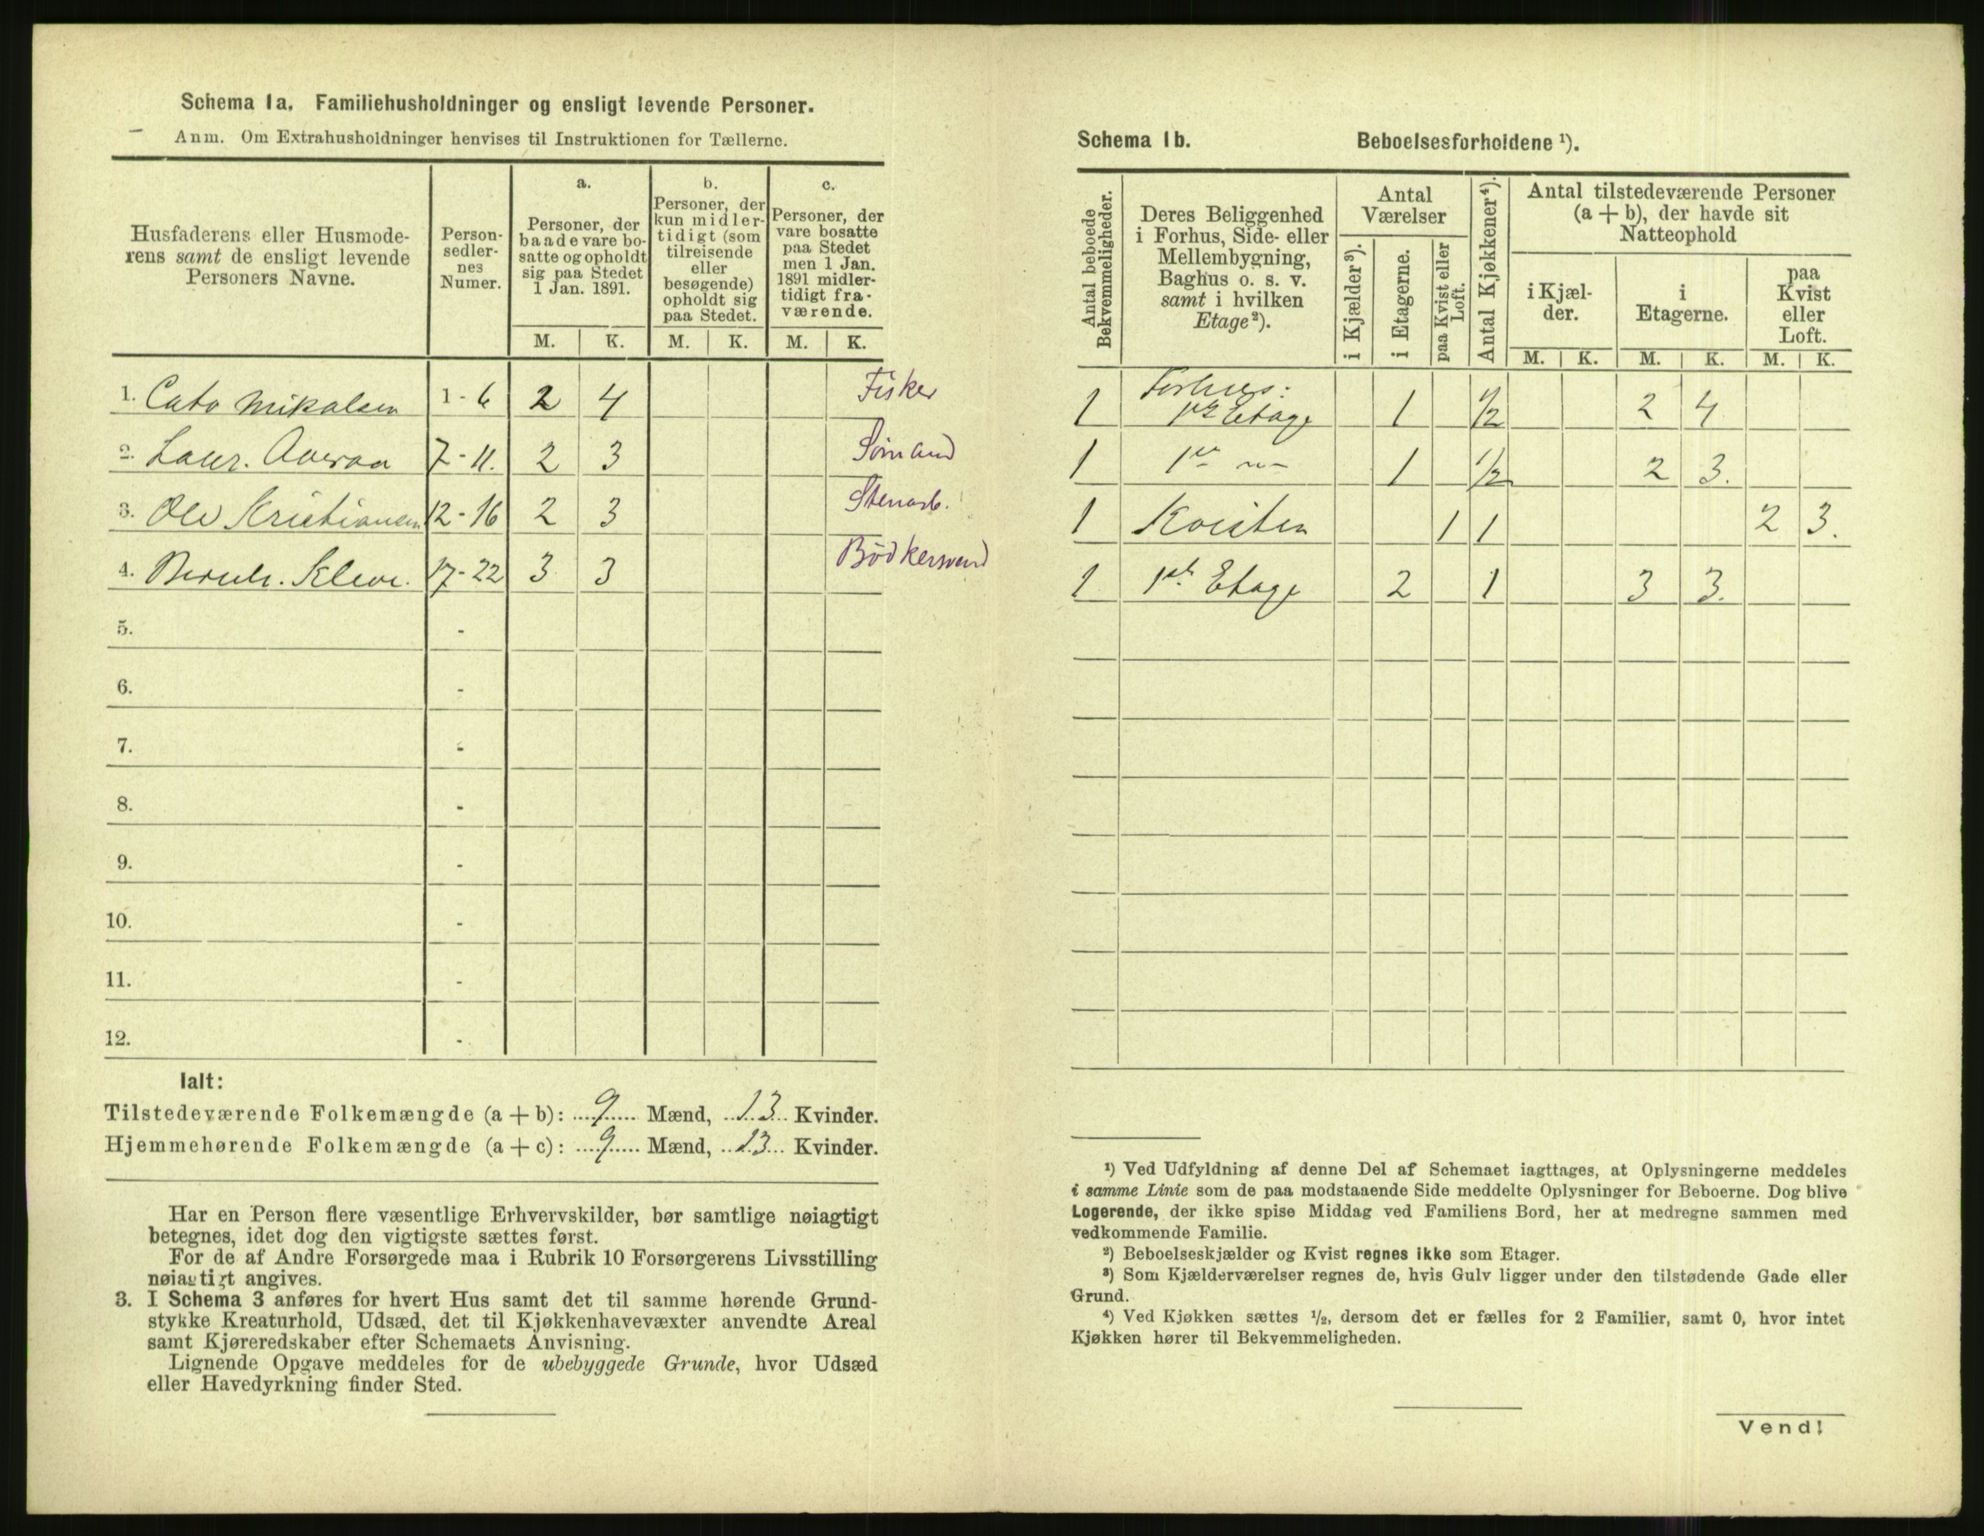 Schema 1a. Familiehusholdninger og ensligt levende Personer.
Anm. Om Extrahusholdninger henvises til Instruktionen for Tællerne.
Husfaderens eller Husmode-
rens samt de ensligt levende
Personers Navne.
Person-
sedler-
nes
Numer.
a.
Personer, der
baade vare bo-
satte og opholdt
sig paa Stedet
1 Jan. 1891.
b.
Personer, der
kun midler-
tidigt (som
tilreisende
eller
besøgende)
opholdt sig
paa Stedet.
c.
Personer, der
vare bosatte
paa Stedet
men 1 Jan.
1891 midler-
tidigt fra-
værende.
M. K. M. K. M. K.
1. Cato Mikalsen 1-6 2 4 Fisker
2. Laur. 7-11. 2 3 Sømand
3. Ole Kristiansen 12-16 2 3 Stenarb.
4. Bernh. Kleve. 17-22 3 3 Bødkersvend
5. -
6. -
7. -
8. -
9. -
10. -
11. -
12. -
Ialt:
Tilstedeværende Folkemængde (a + b): 9 Mænd, 13 Kvinder.
Hjemmehørende Folkemængde (a + c): 9 Mænd, 13 Kvinder.
Har en Person flere væsentlige Erhvervskilder, bør samtlige nøiagtigt
betegnes, idet dog den vigtigste sættes først.
For de af Andre Forsørgede maa i Rubrik 10 Forsørgerens Livsstilling
nøiagtigt angives.
3. I Schema 3 anføres for hvert Hus samt det til samme hørende Grund-
stykke Kreaturhold, Udsæd, det til Kjøkkenhavevæxter anvendte Areal
samt Kjøreredskaber efter Schemaets Anvisning.
Lignende Opgave meddeles for de ubebyggede Grunde, hvor Udsæd
eller Havedyrkning finder Sted.
Schema 1b. Beboelsesforholdene ¹).
Antal beboede
Bekvemmeligheder.
Deres Beliggenhed
i Forhus, Side- eller
Mellembygning,
Baghus o. s. v.
samt i hvilken
Etage²).
Antal
Værelser
i Kjælder³).
i Etagerne.
paa Kvist eller
Loft.
Antal Kjøkkener⁴).
Antal tilstedeværende Personer
(a + b), der havde sit
Natteophold
i Kjæl-
der.
i
Etagerne.
paa
Kvist
eller
Loft.
M. K. M. K. M. K.
1 Forhus: 1ste Etage 1 1/2 2 4
1 1ste -"- 1 1/2 2 3.
1 Kvisten 1 1 2 3.
1 1ste Etage 2 1 3 3.
¹) Ved Udfyldning af denne Del af Schemaet iagttages, at Oplysningerne meddeles
i samme Linie som de paa modstaaende Side meddelte Oplysninger for Beboerne. Dog blive
Logerende, der ikke spise Middag ved Familiens Bord, her at medregne sammen med
vedkommende Familie.
²) Beboelseskjælder og Kvist regnes ikke som Etager.
³) Som Kjælderværelser regnes de, hvis Gulv ligger under den tilstødende Gade eller
Grund.
⁴) Ved Kjøkken sættes ½, dersom det er fælles for 2 Familier, samt 0, hvor intet
Kjøkken hører til Bekvemmeligheden.
Vend!